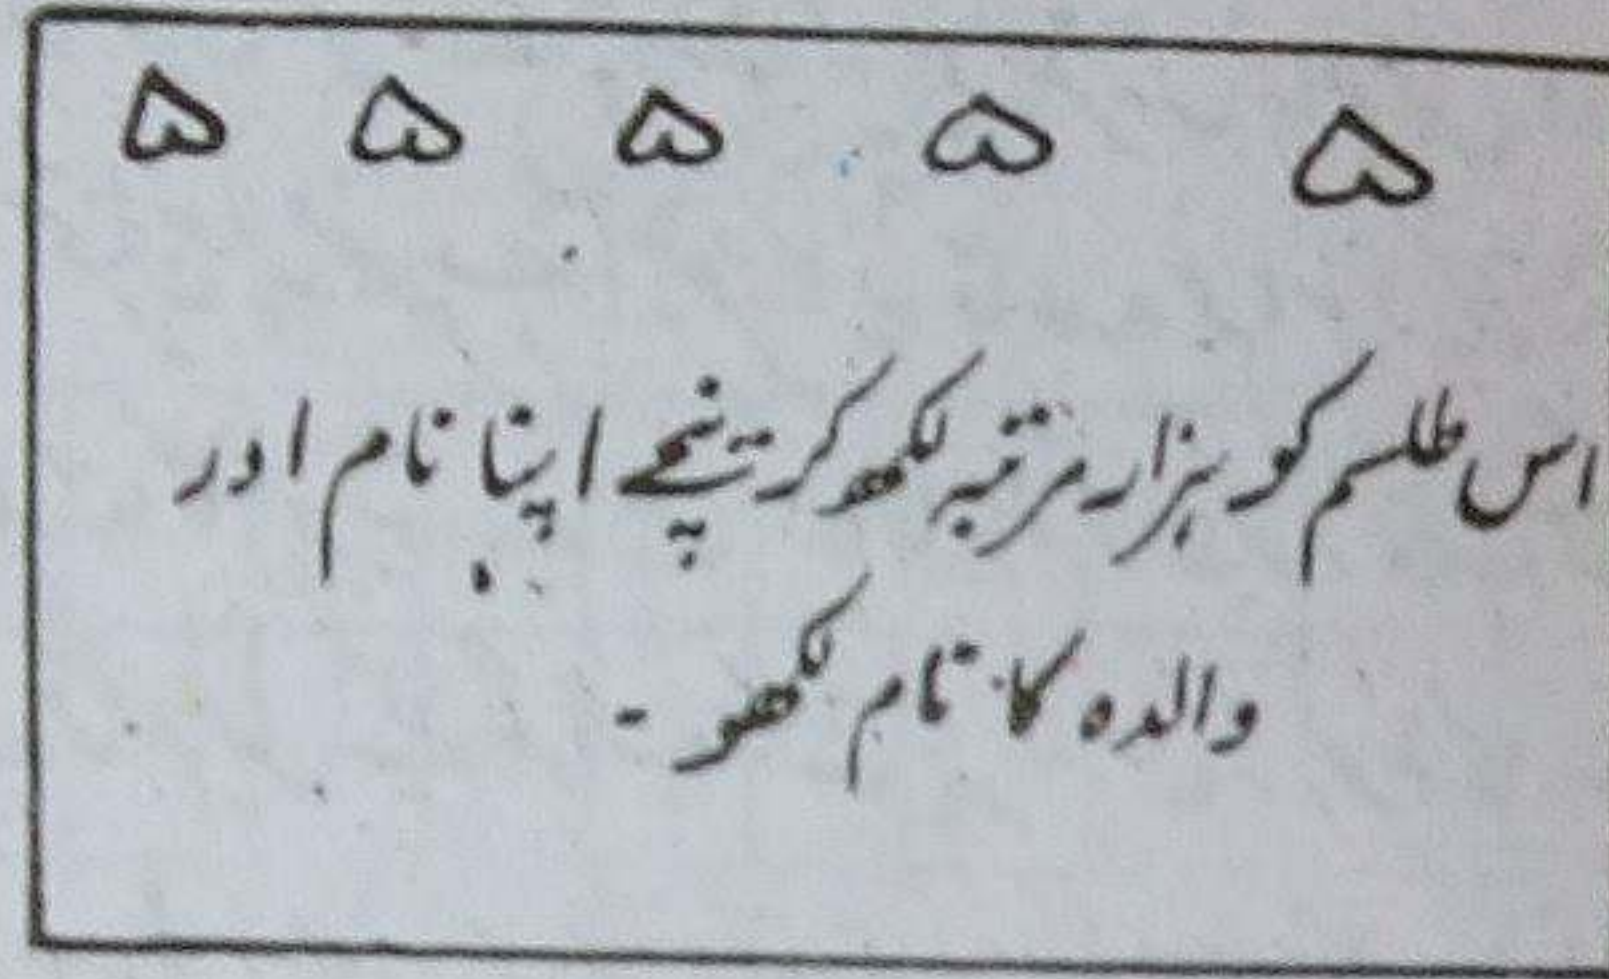 ۵ ۵ ۵ ۵ ۵
اس طلسم کو ہزار مرتبہ لکھ کر نیچے اپنا نام اور
والدہ کا نام لکھو ۔